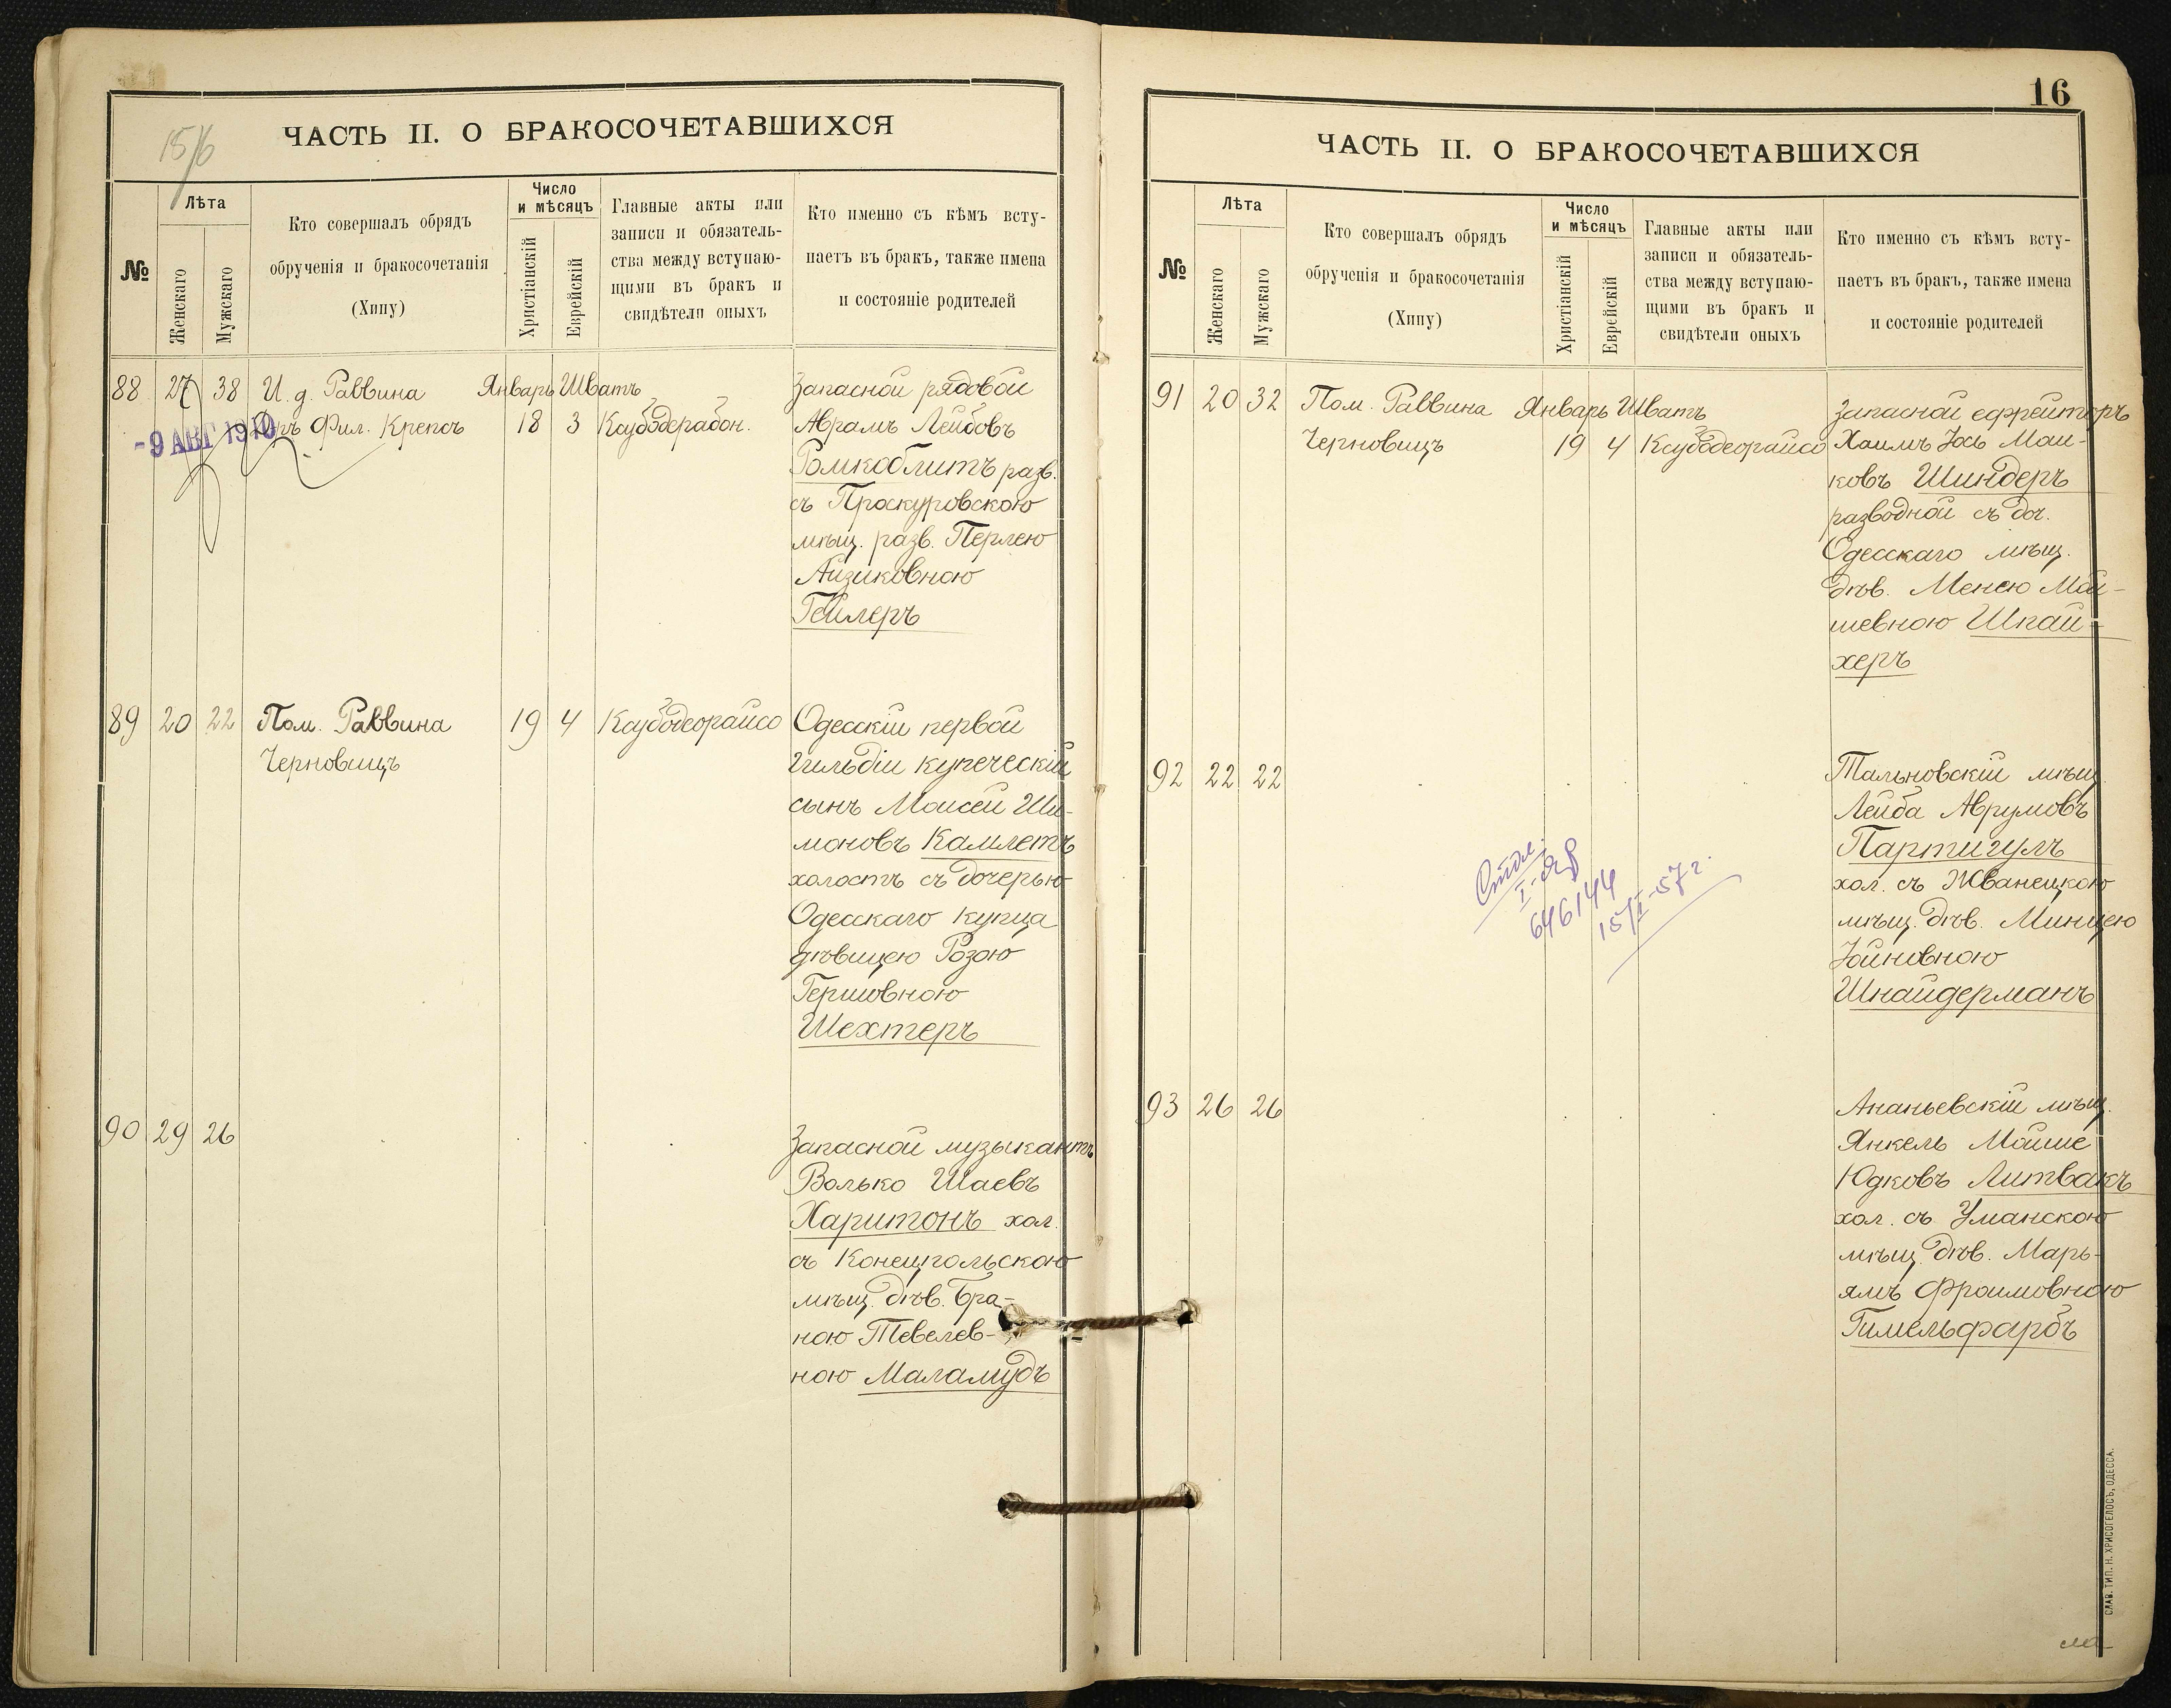 15/6
ЧАСТЬ II. О БРАКОСОЧЕТАВШИХСЯ
№
Лѣта
Женскаго
Мужскаго
Кто совершалъ обрядъ
обрученія и бракосочетанія
(Хипу)
Число
и мѣсяцъ
Христіанскій
Еврейскій
Главные акты или
записи и обязатель-
ства между вступаю-
щими въ бракъ и
свидѣтели оныхъ
Кто именно съ кѣмъ всту-
паетъ въ бракъ, также имена
и состояніе родителей
88 27 38 И. д. Раввина Январь Шватъ
-9 АВГ 1910
Фил. Крепсъ 18 3
Запасной рядовой
Аврамъ Лейбовъ
разв.
съ Проскуровскою
мѣщ. разв. Перлею
Айзиковною
Гейлеръ
89 20 22 Пом. Раввина 19 4
Черновицъ
Одесскій первой
гильдіи купеческій
сынъ Моисей Ши-
моновъ Камлетъ
холостъ съ дочерью
Одесскаго купца
дѣвицею Розою
Гершовною
Шехтеръ
90 29 26
Запасной музыкантъ
Волько Шаевъ
Харитонъ хол.
съ Конецпольскою
мѣщ. дѣв. Бра-
ною Тевелев-
ною Маламудъ
16
ЧАСТЬ II. О БРАКОСОЧЕТАВШИХСЯ
№
Лѣта
Женскаго
Мужскаго
Кто совершалъ обрядъ
обрученія и бракосочетанія
(Хипу)
Число
и мѣсяцъ
Христіанскій
Еврейскій
Главные акты или
записи и обязатель-
ства между вступаю-
щими въ бракъ и
свидѣтели оныхъ
Кто именно съ кѣмъ всту-
паетъ въ бракъ, также имена
и состояніе родителей
91 20 32 Пом. Раввина Январь Шватъ
Черновицъ 19 4
Запасной ефрейторъ
Хаимъ Іось Мош-
ковъ Шиндеръ
разводной съ доч.
Одесскаго мѣщ.
дѣв. Менею Мой-
шевною Шпай-
херъ
92 22 22
Тальновскій мѣщ.
Лейба Аврумовъ
Партигулъ
хол. съ Жванецкою
мѣщ. дѣв. Минцею
Іойновною
Шнайдерманъ
646144
15/I-57 г.
93 26 26
Ананьевскій мѣщ.
Янкель Мойше
Юдковъ Литвакъ
хол. съ Уманскою
мѣщ. дѣв. Марь-
ямъ Фроимовною
Гимельфарбъ
СЛАВ. ТИП. Н. ХРИСОГЕЛОСЪ, ОДЕССА.